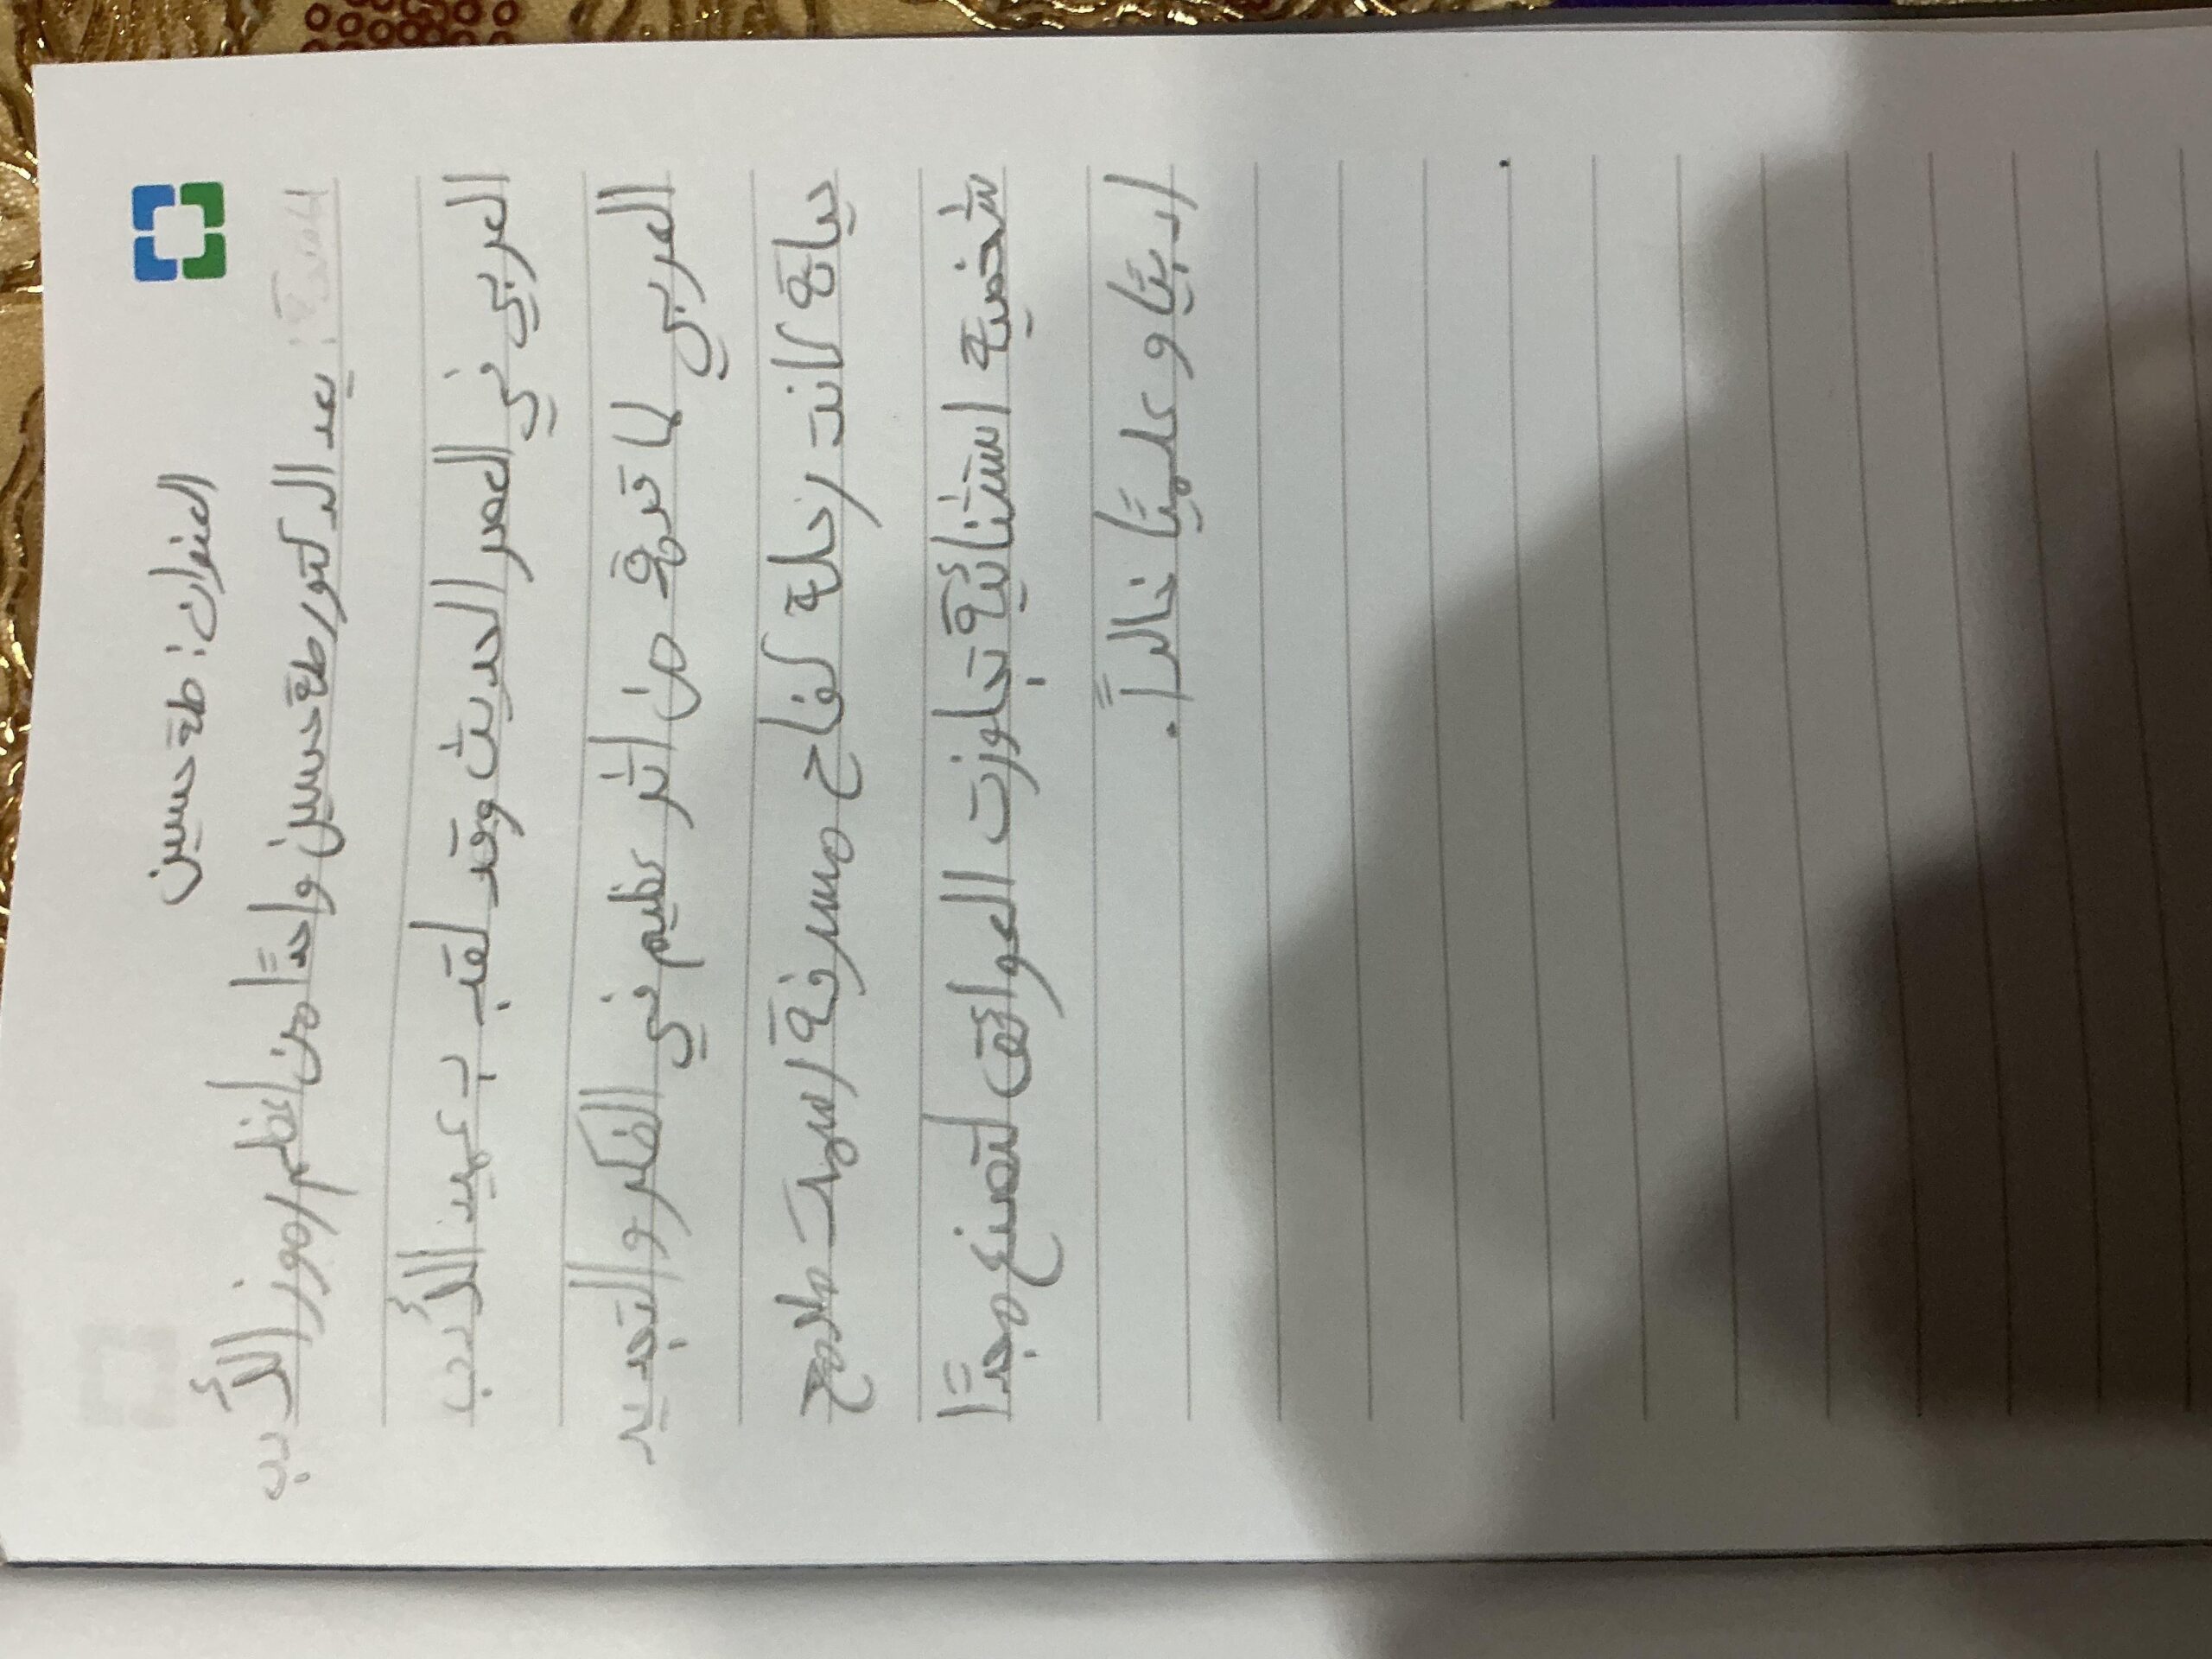 العنوان: طة حسين
المقدمة: يعد الدكتور طة حسين واحدًا من اعظم رموز الأدب
العربي في العصر الحديث وقد لقب ب عميد الأدب
العربي لما قدمة من اثر عظيم في الفكر والتجديد
حياة كانت رحلة كفاح مسرفة رسمت ملامح
شخصية استثنائية تجاوزت العوائق لتصنع مجدًا
ادبيًا وعلميًا خالداً.